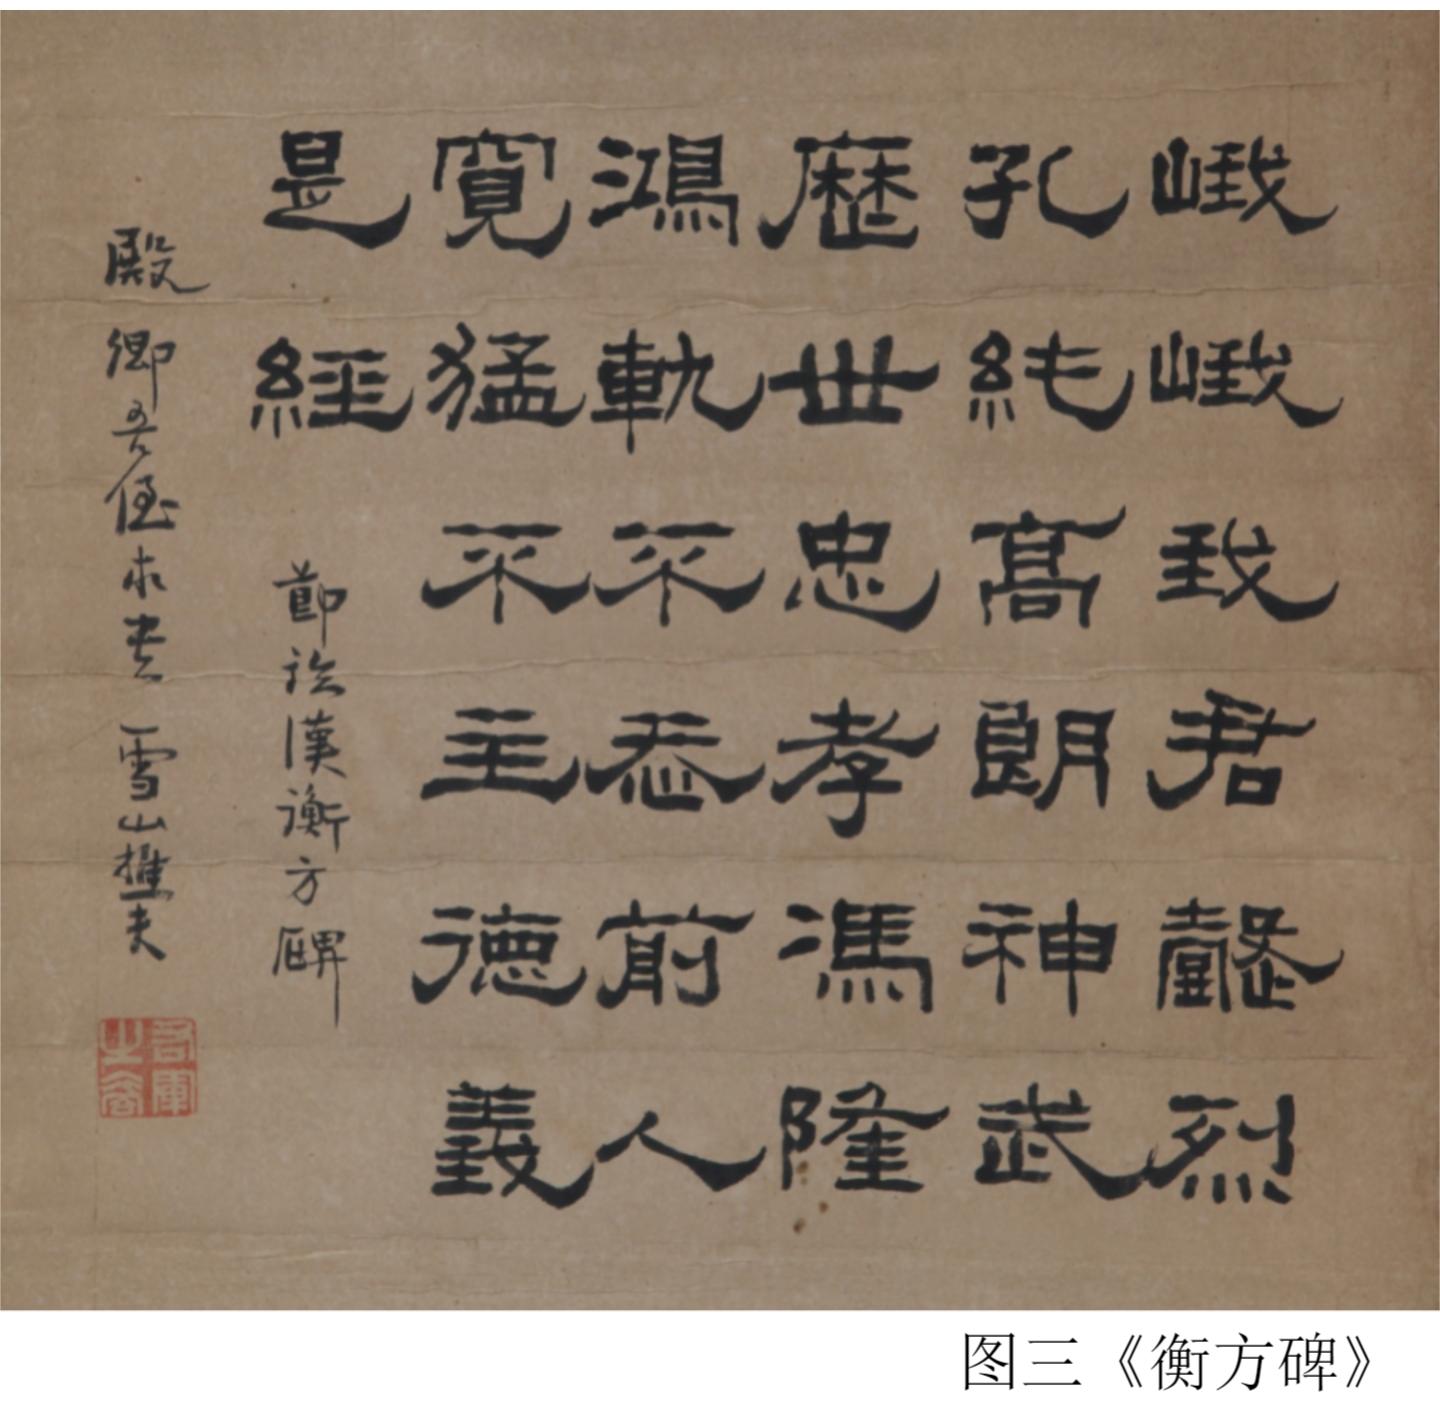 峨峨我君懿烈
孔純高朗神武
歷世忠孝馮隆
鴻軌不忝前人
寬猛不主德義
是經
節臨漢衡方碑
殿卿吾侄求書 雪山樵夫
右軍之裔
图三《衡方碑》